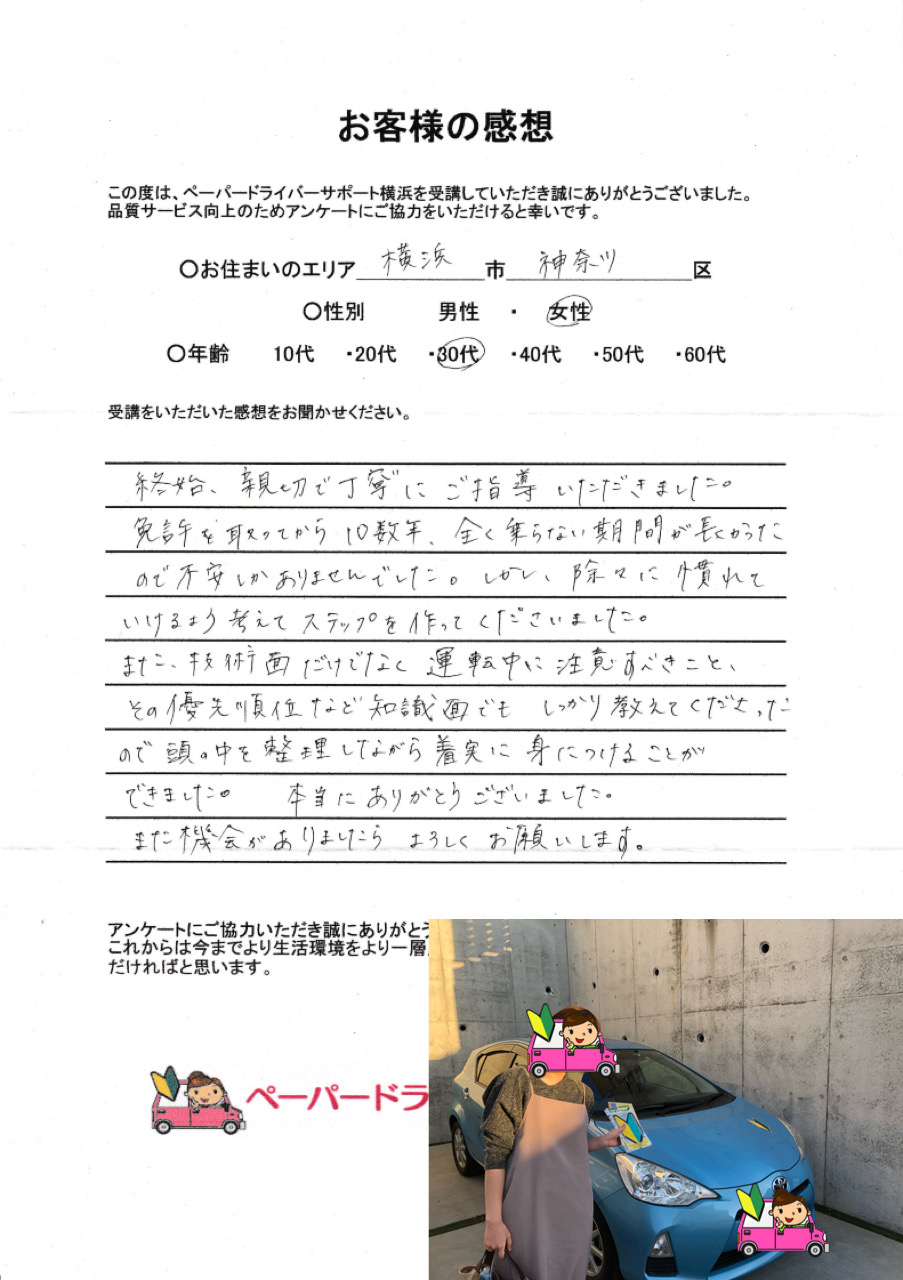 お客様の感想
この度は、ペーパードライバーサポート横浜を受講していただき誠にありがとうございました。
品質サービス向上のためアンケートにご協力をいただけると幸いです。
〇お住まいのエリア 横浜 市 神奈川 区
〇性別 男性 ・ 女性
〇年齢 10代 ・20代 ・30代 ・40代 ・50代 ・60代
受講をいただいた感想をお聞かせください。
終始、親切で丁寧に ご指導 いただきました。
免許を取ってから10数年、全く乗らない期間が長かった
ので不安しかありませんでした。しかし、除々に慣れて
いけるよう考えてステップを作ってくださいました。
また、技術面だけでなく運転中に注意すべきこと、
その優先順位など知識面でも しっかり教えてくださった
ので頭の中を整理しながら着実に身につけることが
できました。 本当にありがとうございました。
また機会がありましたら よろしくお願いします。
アンケートにご協力いただき誠にありがとう
これからは今までより生活環境をより一層
だければと思います。
ペーパードラ